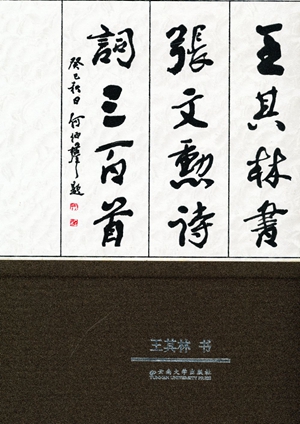 王其林書
張文勲诗
詞三百首
癸巳秋日 何伯群题
王其林 书
云南大学出版社
YUNNAN UNIVERSITY PRESS